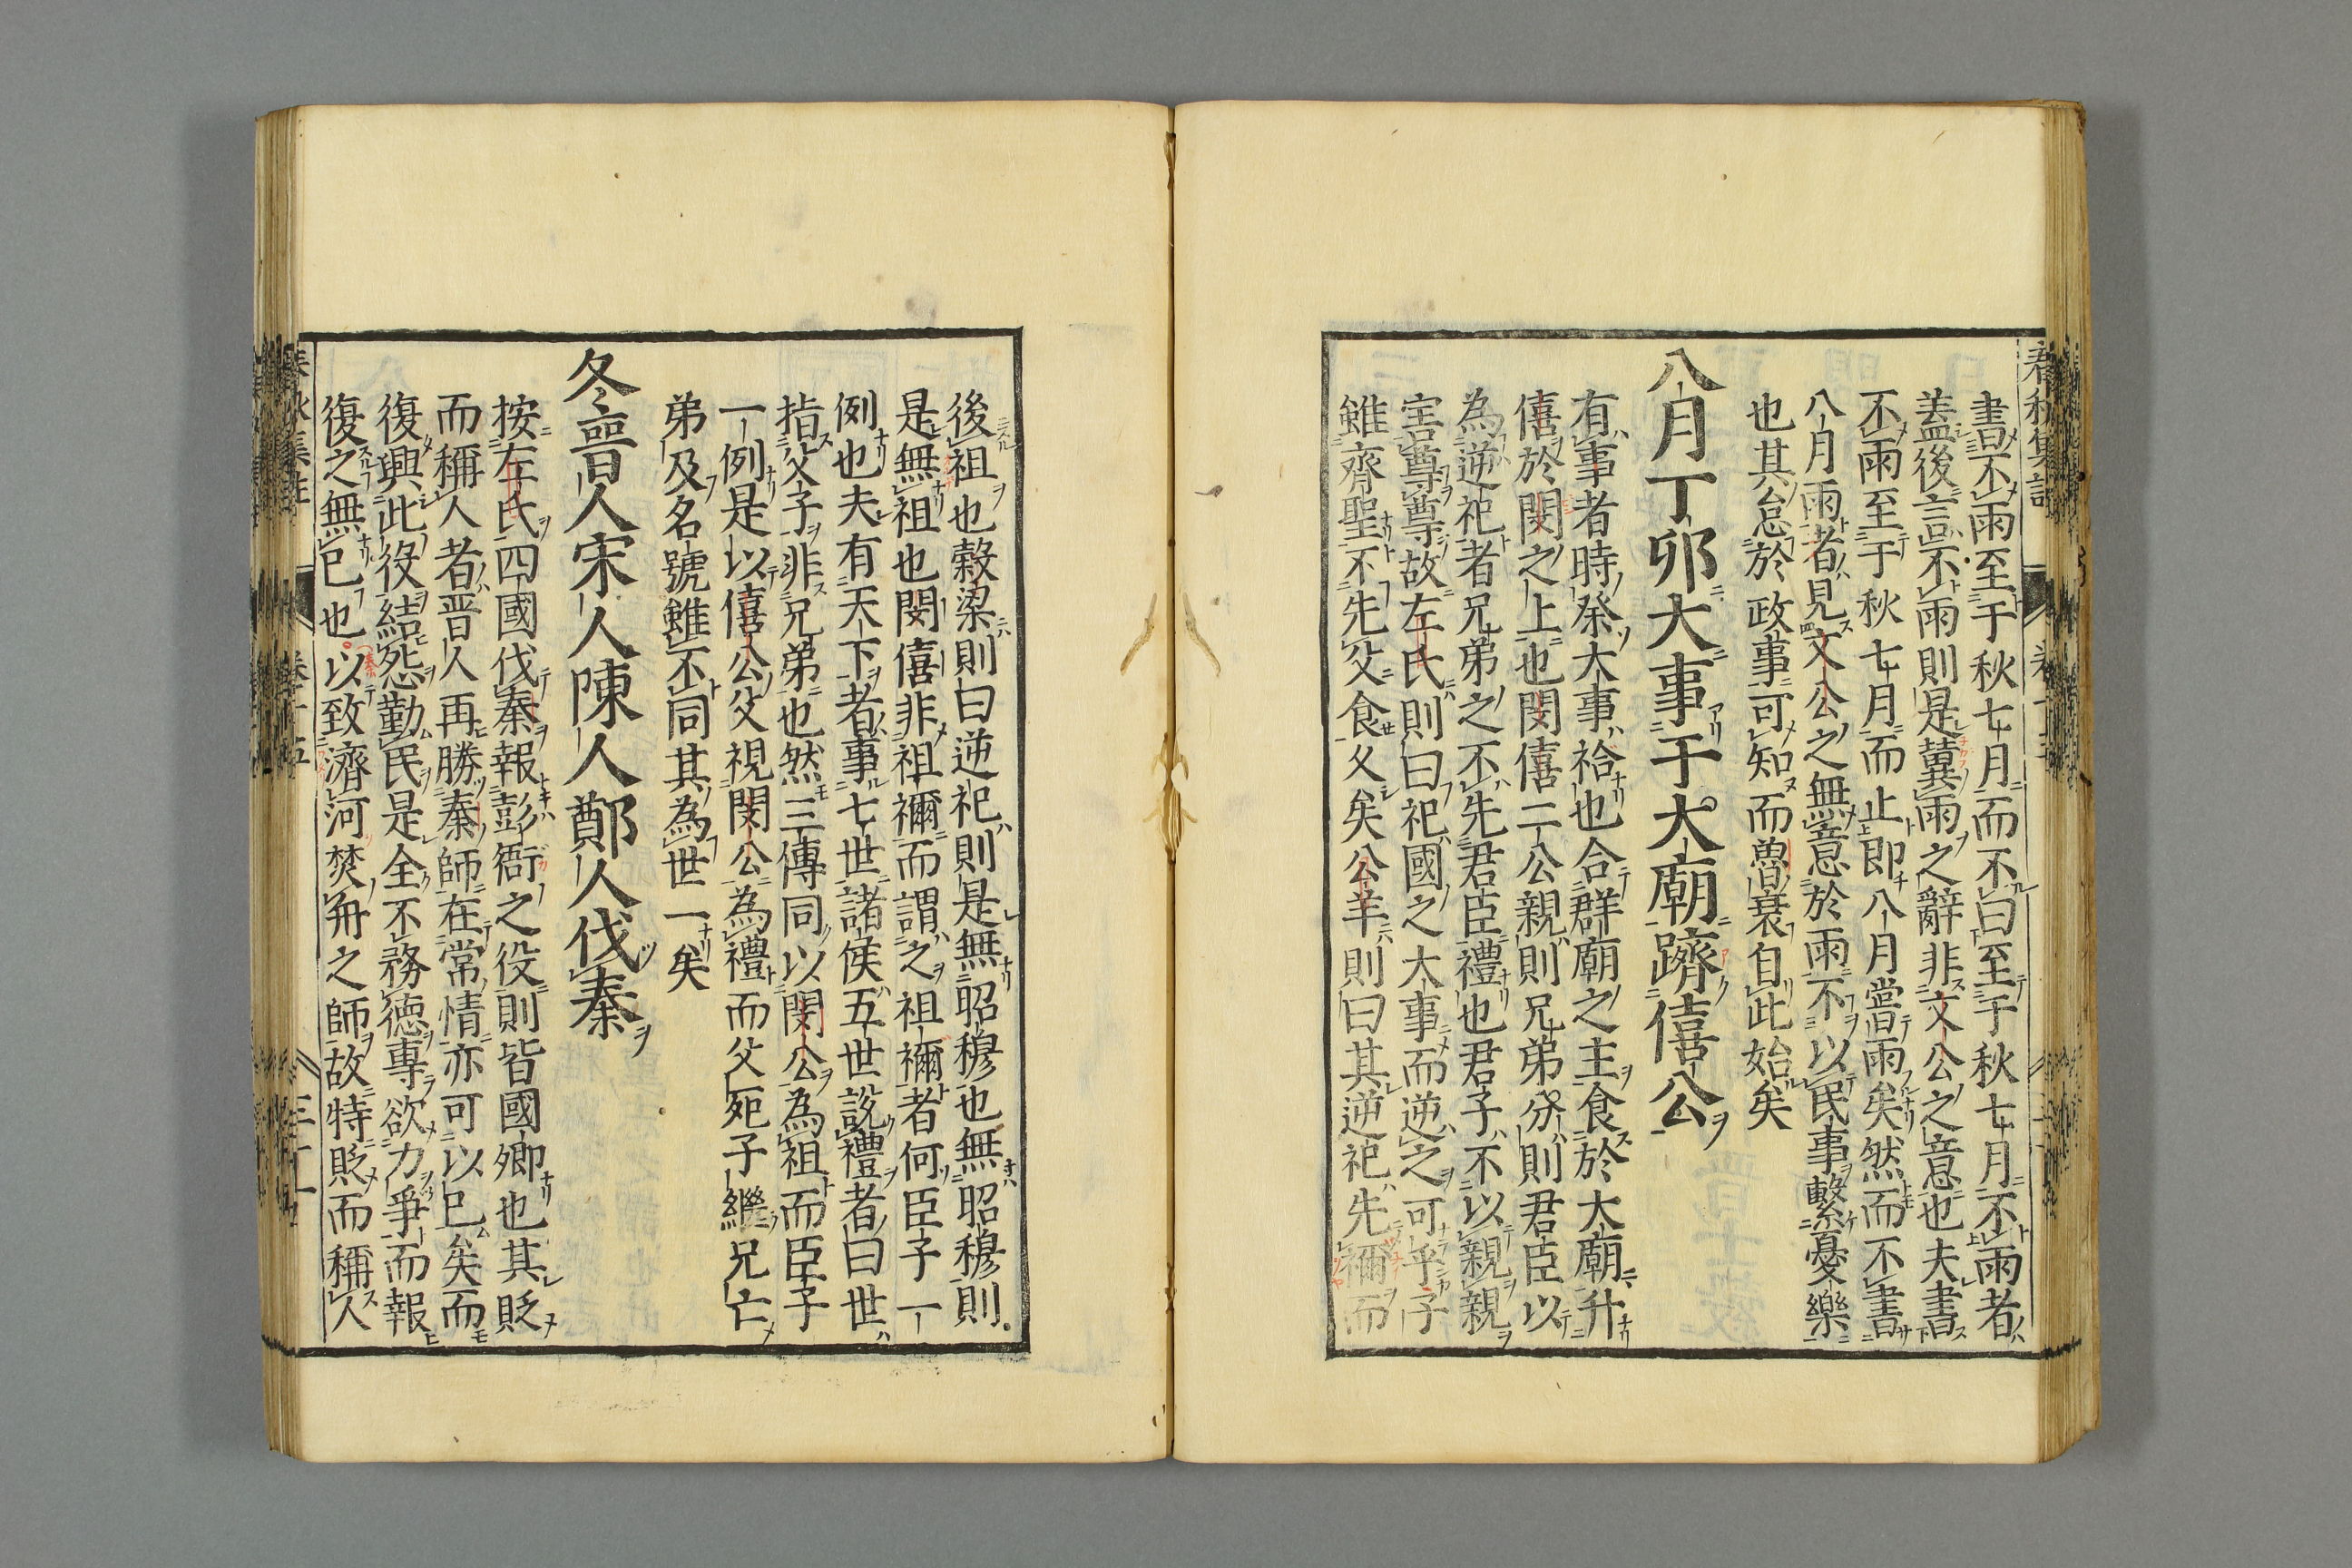 書不雨至于秋七月而不曰至于秋七月不雨者
蓋後言不雨則是冀雨之辭非文公之意也夫書
不雨至于秋七月而止即八月嘗雨矣然而不書
八月雨者見文公之無意於雨不以民事繫憂樂
也其怠於政事可知而魯衰自此始矣
八月丁卯大事于大廟躋僖公
有事者時祭大事祫也合群廟之主食於大廟升
僖於閔之上也閔僖二公親則兄弟分則君臣以
為逆祀者兄弟之不先君臣禮也君子不以親親
害尊尊故左氏則曰祀國之大事而逆之可乎子
雖齊聖不先父食久矣公羊則曰其逆祀先禰而
後祖也穀梁則曰逆祀則是無昭穆也無昭穆則
是無祖也閔僖非祖禰而謂之祖禰者何臣子一
例也夫有天下者事七世諸侯五世說禮者曰世
指父子非兄弟也然三傳同以閔公為祖而臣子
一例是以僖公父視閔公為禮而父死子繼兄亡
弟及名號雖不同其為世一矣
冬晉人宋人陳人鄭人伐秦
按左氏四國伐秦報彭衙之役則皆國卿也其貶
而稱人者晉人再勝秦師在常情亦可以已矣而
復興此役結怨勤民是全不務德專欲力爭而報
復之無已也以致濟河焚舟之師故特貶而稱人